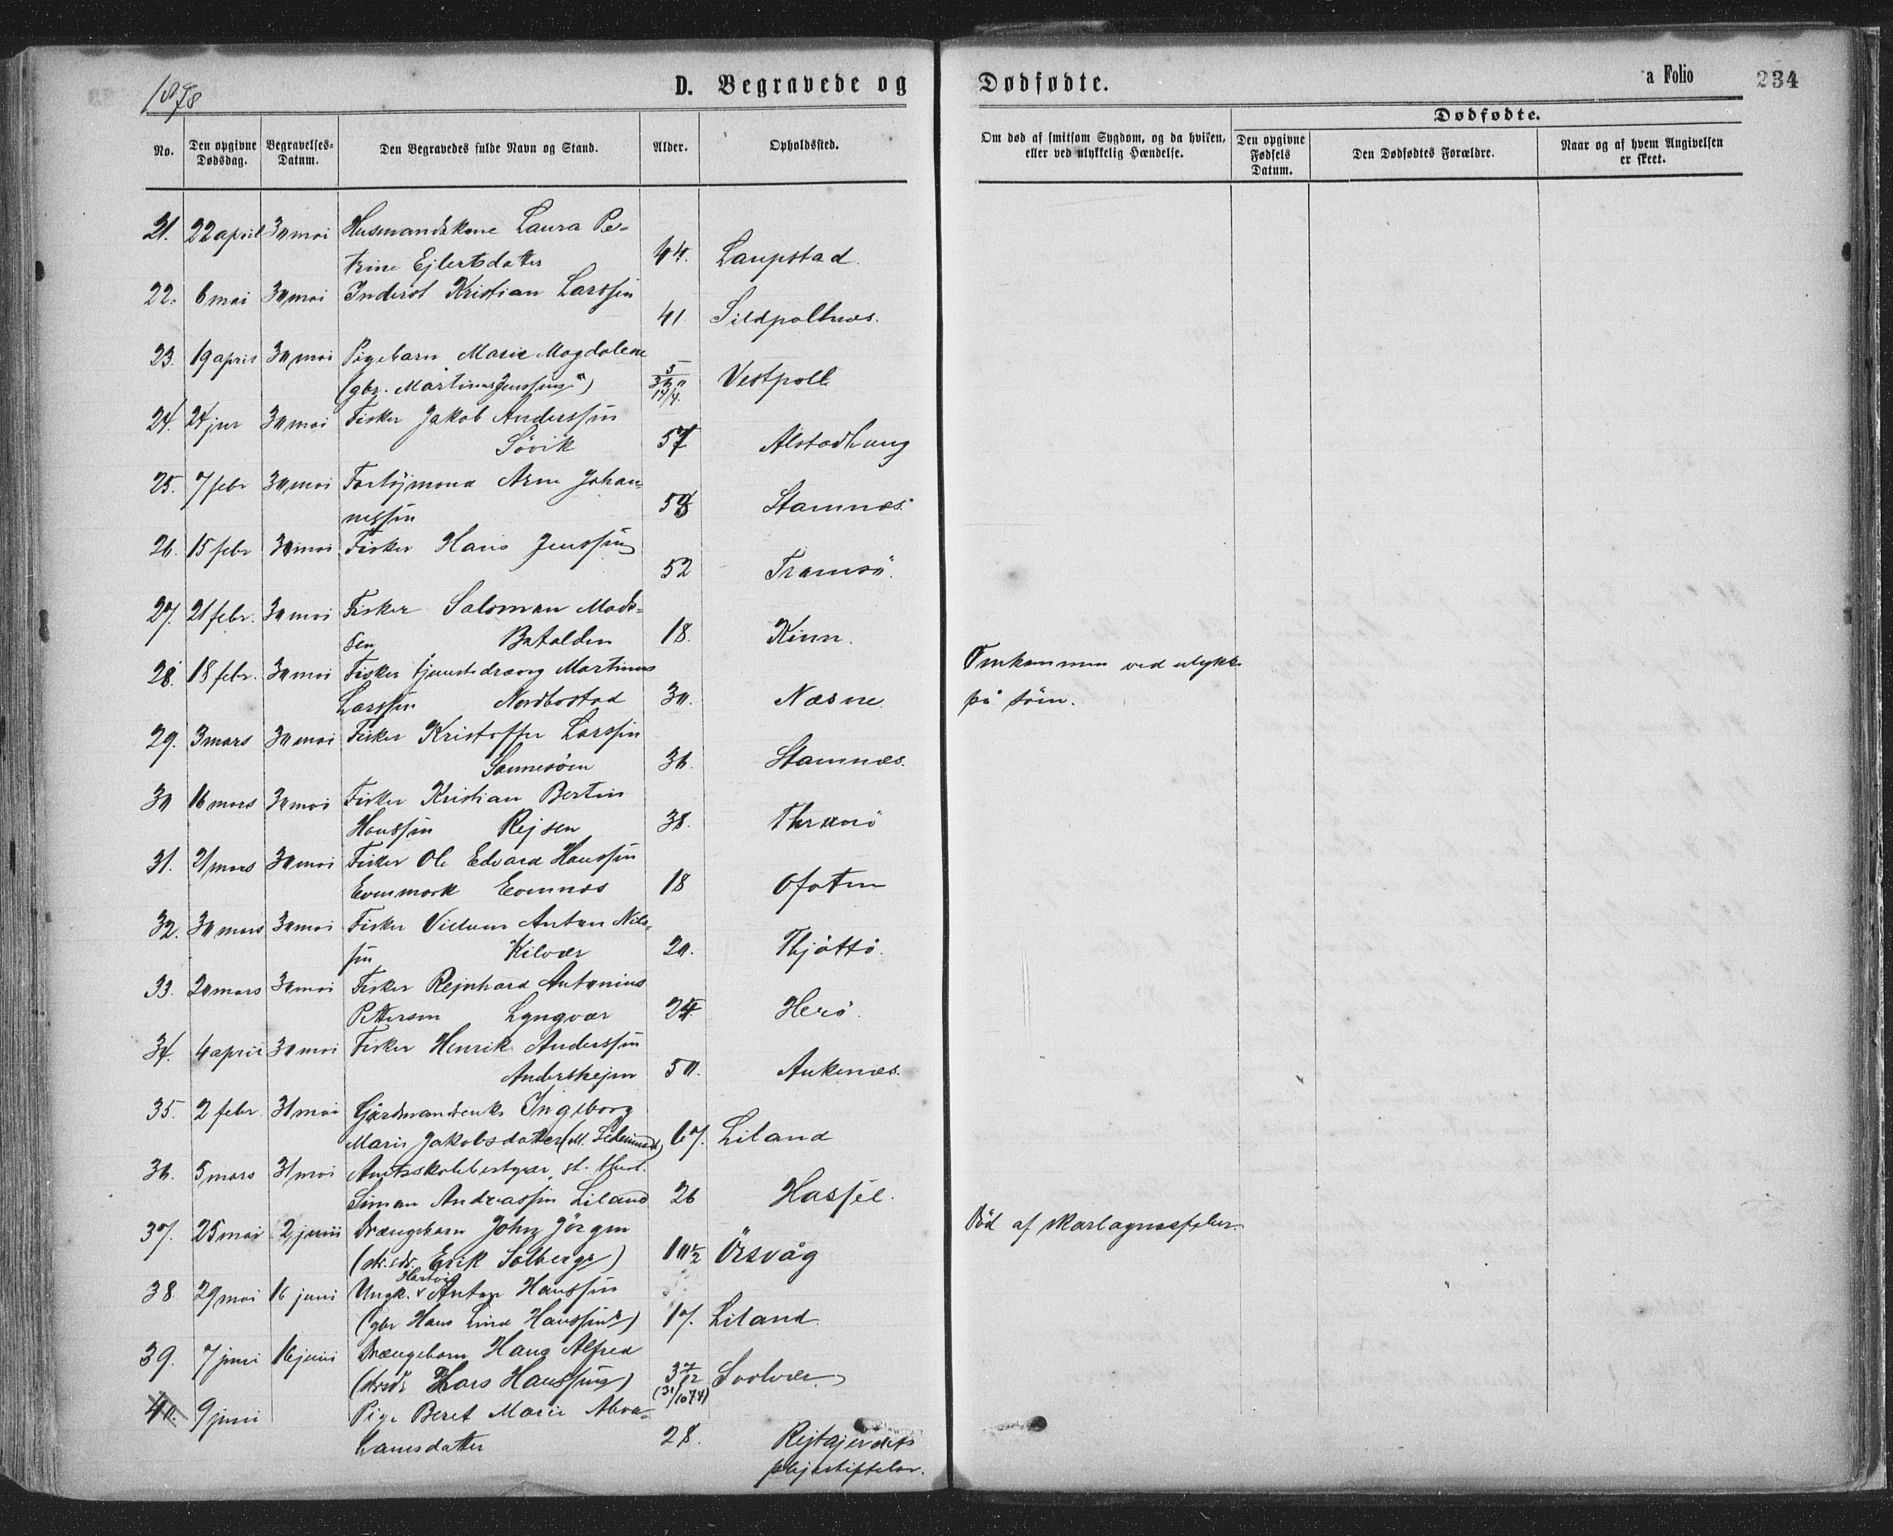 1878
D. Begravede og
Dødfødte.
a Folio
234
No.
Den opgivne Dødsdag.
Begravelses-Datum.
Den Begravedes fulde Navn og Stand.
Alder.
Opholdssted.
Om død af smitsom Sygdom, og da hvilken, eller ved ulykkelig Hændelse.
Dødfødte.
Den opgivne Fødsels Datum.
Den Dødfødtes Forældre.
Naar og af hvem Angivelsen er skeet.
21. 22 april 30 mai Husmandskone Laura Pe-
trine Ejlertsdatter 44. Laupstad.
22. 6 mai 30 mai Inderst Kristian Larssen
41. Sildpollnæs.
23. 19 april 30 mai Pigebarn Marie Magdalene
(gbr. Martinus Jenssens) Vestpoll
24. 24 jan 30 mai Fisker Jakob Anderssen
Søvik 57 Alstadhaug
25. 7 febr 30 mai Arne Johan-
nessen Stamnæs.
26. 15 febr 30 mai Fisker Hans Jenssen
52 Tromsö.
27. 21 febr. 30 mai Fisker Saloman Mads-
sen Batalden 18. Kinn.
28. 18 febr. 30 mai Fisker Martinus
Omkommen ved ulykke
Larssen Nordbostad 30. Næsne
på søen.
29. 3 mars 30 mai Fisker Kristoffer Larssen
36. Stamnæs.
30 16 mars 30 mai Fisker Kristian Bertin
Hanssen Rejsen 38. Thranö
31. 21 mars 30 mai Fisker Ole Edvard Hanssen
Evenmark Evennæs 18 Ofoten
32. 30 mars 30 mai Fisker Anton Nils-
sen Kilvær 20. Thjøttö.
33. 20 mars 30 mai Fisker Rejnhard Antonius
Pettersen Lyngvær 24. Herö.
34. 4 april 30 mai Fisker Henrik Anderssen
50. Ankenæs.
35. 2 febr. 31 mai Gårdmandsenke Ingeborg
Marie Jakobsdatter 67. Liland
36. 5 mars 31 mai Amtsskolebestyrer,
Simon Andreassen Liland 26 Hassel.
37. 25 mai 2 juni Drengebarn John Jörgen
Död af skarlagensfeber
Erik Solbergs) 10½ Örsvåg
38 29 mai 16 juni Ungk. Hartvig Anton Hanssen
(gbr Hans Lind Hanssens) 17. Liland
39. 7 juni 16 juni Drengebarn Hans Alfred
Lars Hanssens) 3 7/12 Svolvær
(31/10 74)
40. 9 juni Pige Beret Marie Abra-
hamsdatter 28. Rejtgjerdets
plejestiftelse.